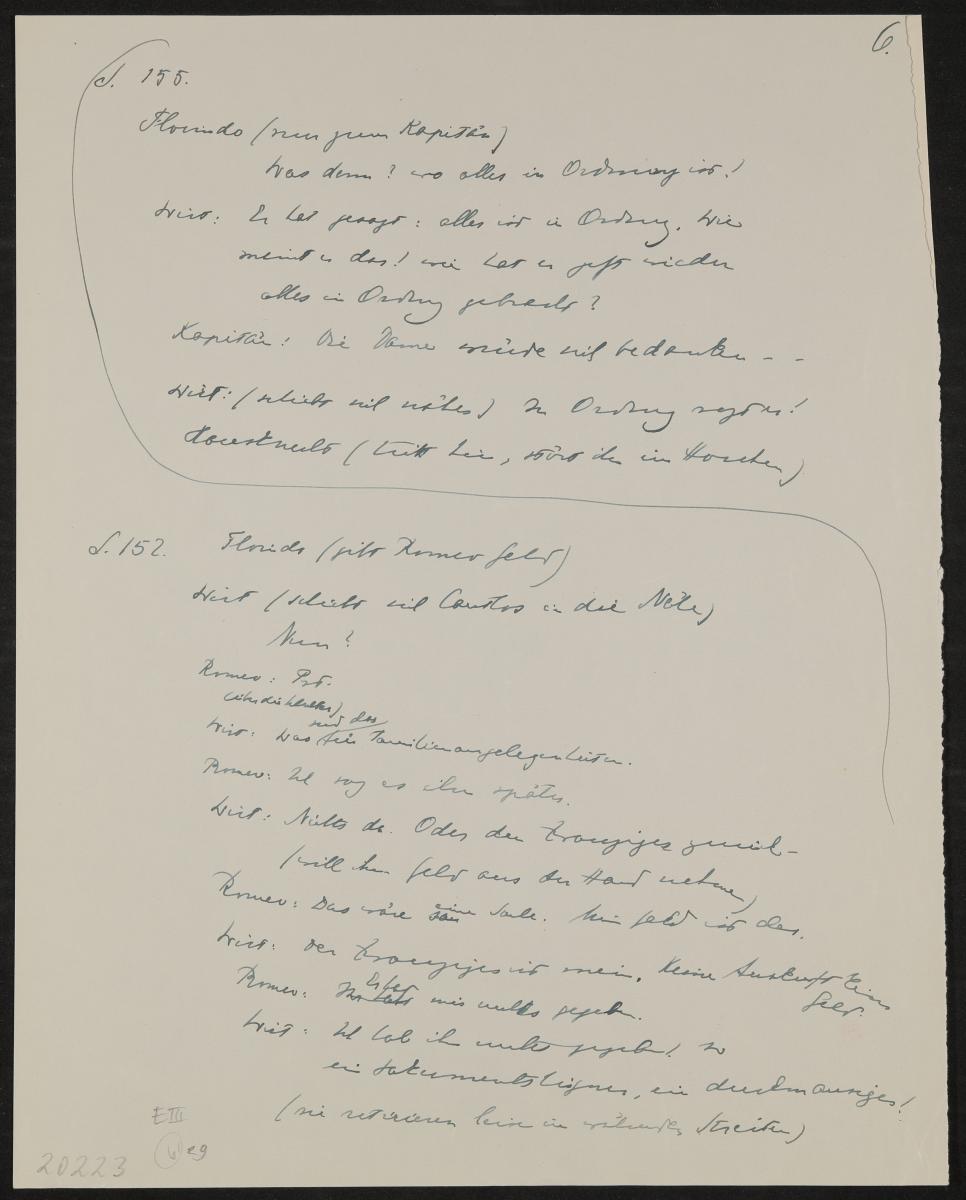 6.
S. 155.
Florindo (nun zum Kapitän)
Was denn? wo alles in Ordnung ist!
Wirt: Er hat gesagt: alles ist in Ordnung. Wie
meint er das! wie hat er jetzt wieder
alles in Ordnung gebracht?
Kapitän: Die Dame würde sich bedanken - -
Wirt: (schiebt sich näher) In Ordnung sagt er!
Hausknecht (tritt hin, stört ihn im Horchen)
S. 152. Florindo (gibt Romeo Geld)
Wirt (schiebt sich lautlos in die Nähe)
Nun?
Romeo: Pst.
Wirt: Was sind das Familienangelegenheiten.
Romeo: Ich sag es ihm später.
Wirt: Nichts da. Oder den Zwanziger zurück –
(will ihm Geld aus der Hand nehmen)
Romeo: Das wäre eine Sache. Mein Geld ist das.
Wirt: Der Zwanziger ist mein. Keine Auskunft kein
Geld.
Romeo: Er hat mir nichts gegeben.
Wirt: Ich hab ihm nichts gegeben! So
ein Dokumentsleugner, ein duckmausiger!
(sie retirieren leise im währenden Streiten)
E III
6 eg
20223